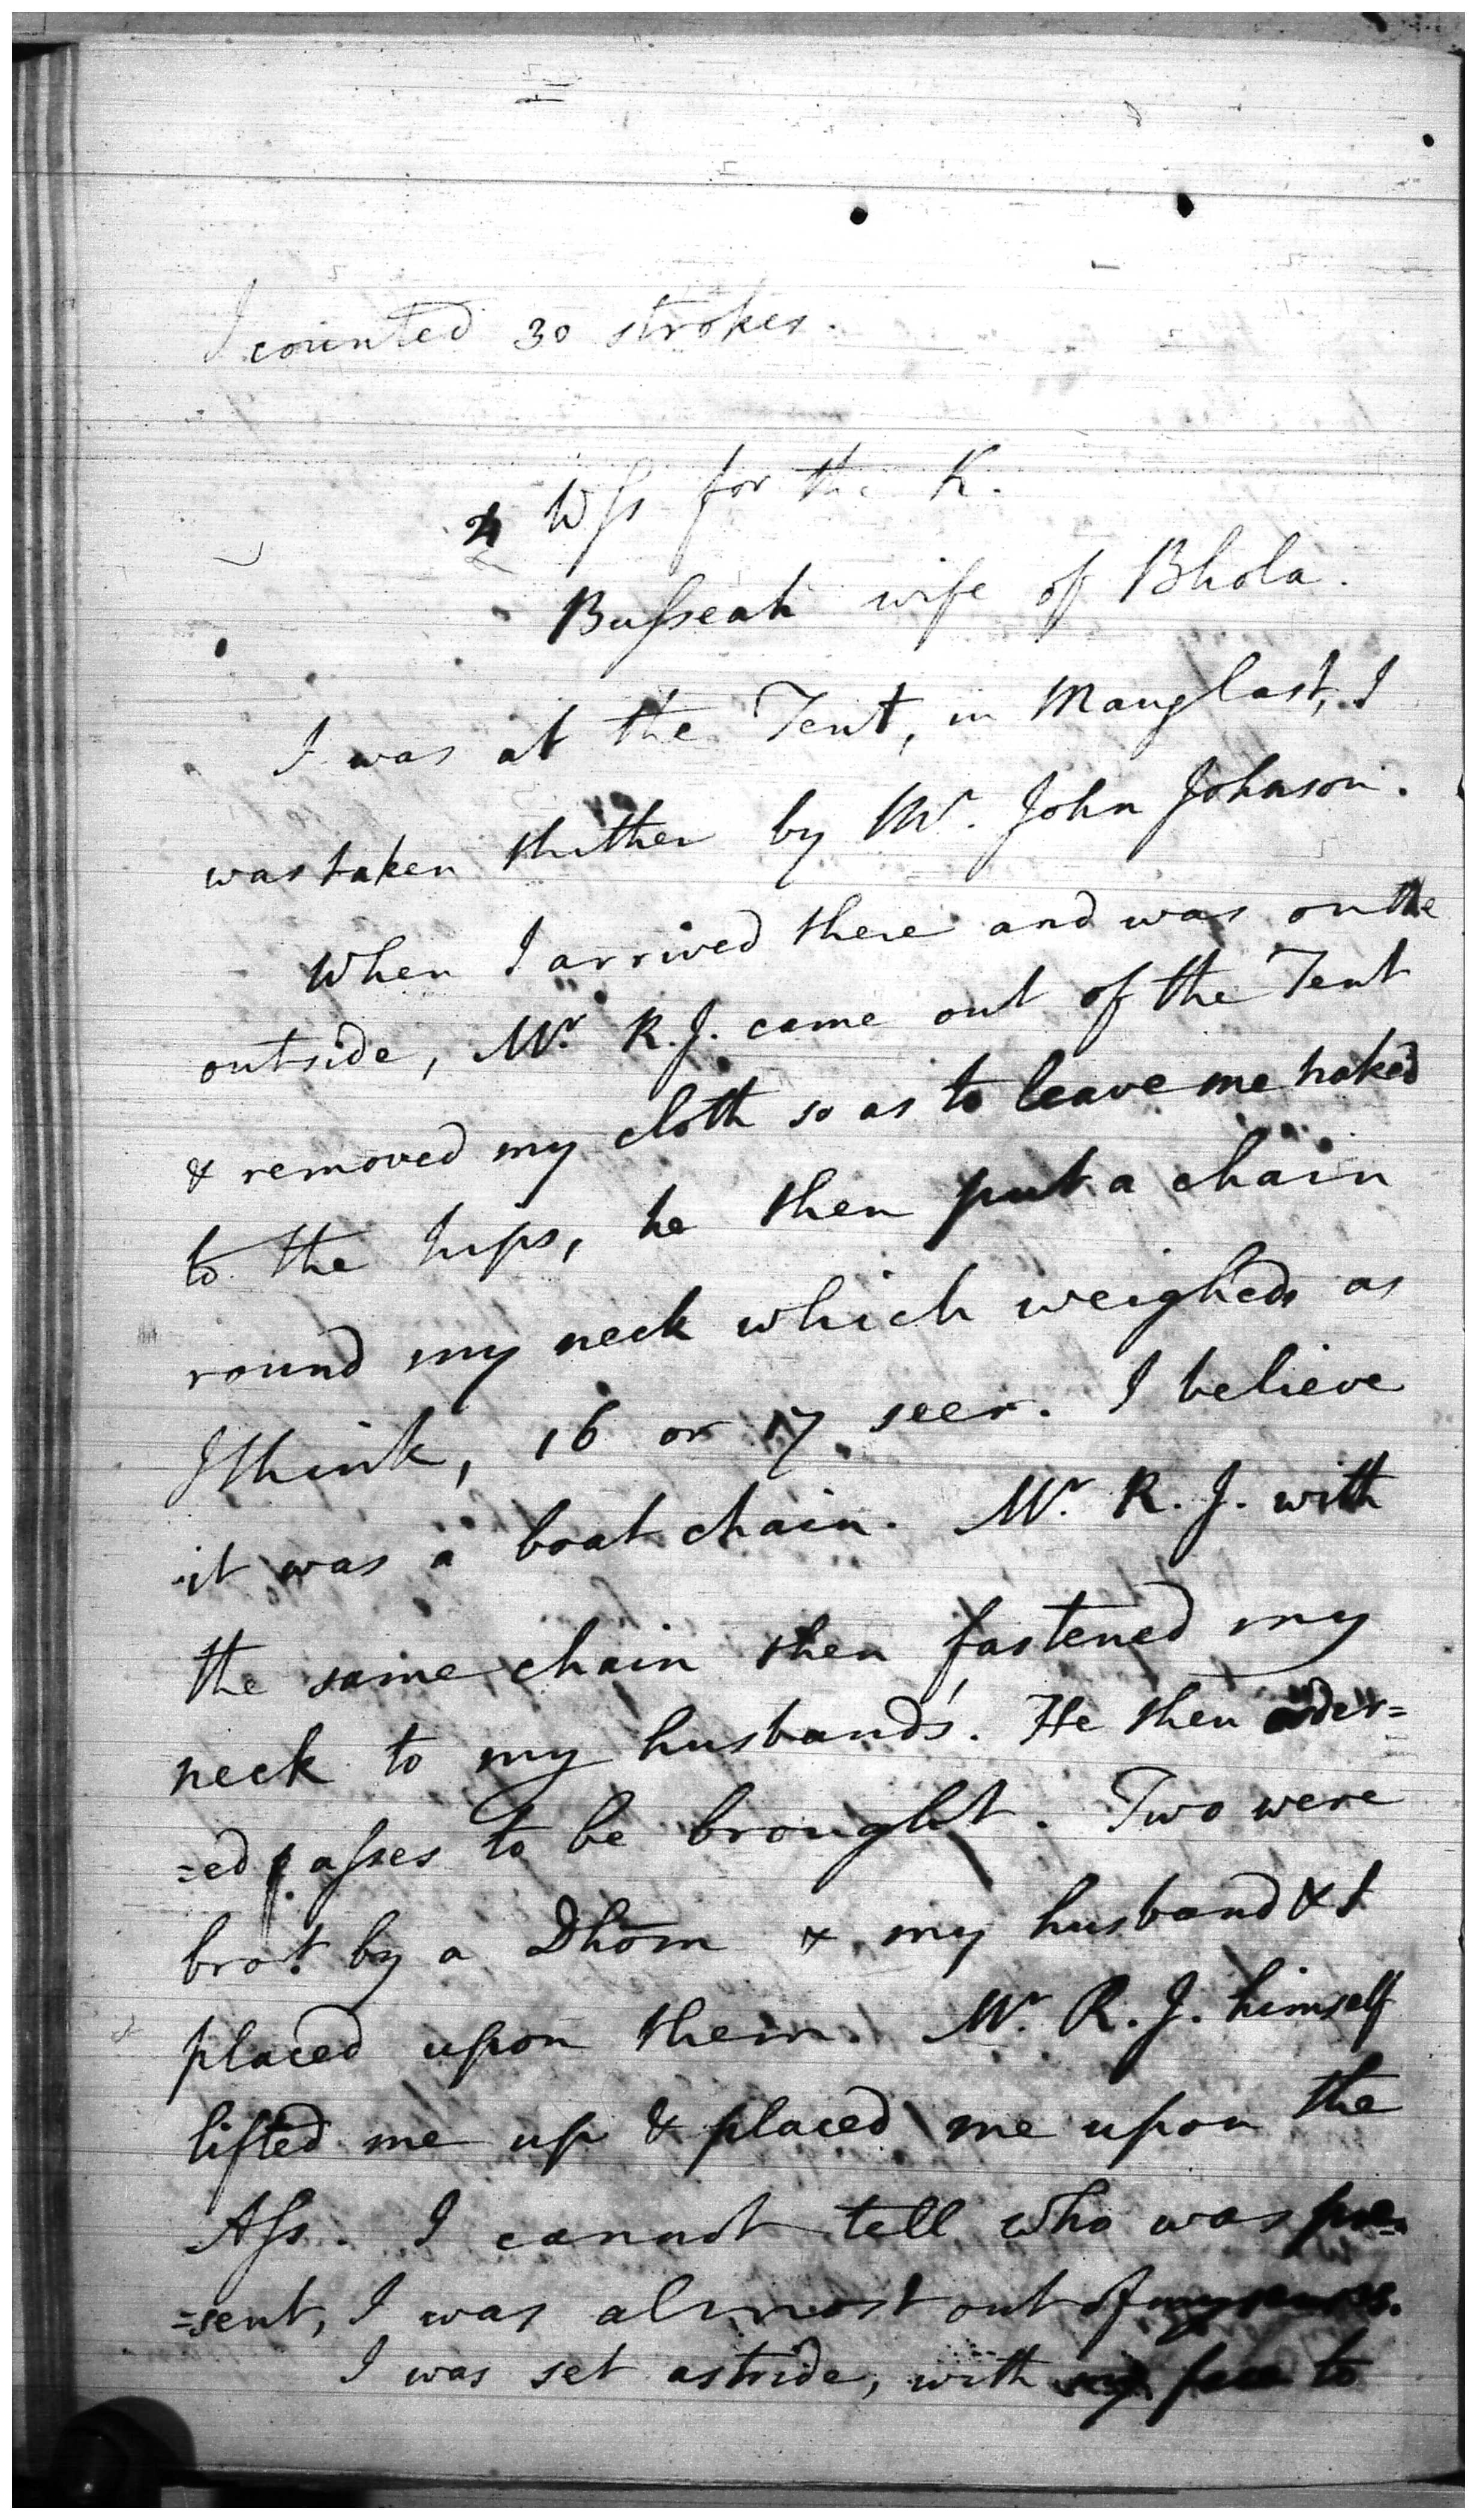 I counted 30 strokes.
2 Wſs for the K.
Buſseah wife of Bhola.
I was at the Tent, in Maug last, I
was taken thither by Mr. John Johnson.
When I arrived there and was on the
outside, Mr. R. J. came out of the Tent
& removed my cloth so as to leave me naked
to the hips, he then put a chain
round my neck which weighed as
I think, 16 or 17 seer. I believe
it was a boat chain. Mr. R. J. with
the same chain then fastened my
neck to my husband's. He then order=
=ed aſses to be brought. Two were
brot. by a Dhōm & my husband & I
placed upon them. Mr. R. J. himself
lifted me up & placed me upon the
Aſs. I cannot tell who was pre=
=sent, I was almost out of my senses.
I was set astride, with my face to